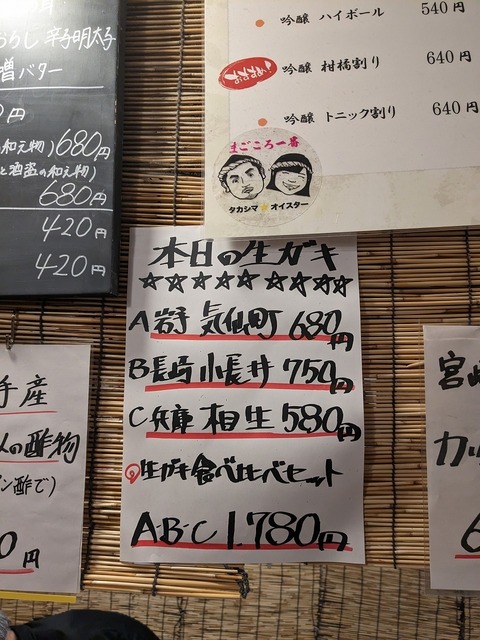 おろし 辛子明太子
噌バター
0円
の和え物)680円
と酒盗の和え物)
680円
420円
420円
吟醸 ハイボール 540円
おすすめ!
吟醸 柑橘割り 640円
吟醸 トニック割り 640円
まごころ一番
タカシマ★オイスター
本日の生ガキ
☆☆☆☆☆☆☆☆☆☆
A 岩手 気仙町 680円
B 長崎 小長井 750円
C 兵庫 相生 580円
生ガキ食べ比べセット
A・B・C 1,780円
手産
人の酢物
ン酢で)
0円
宮崎
カ
6